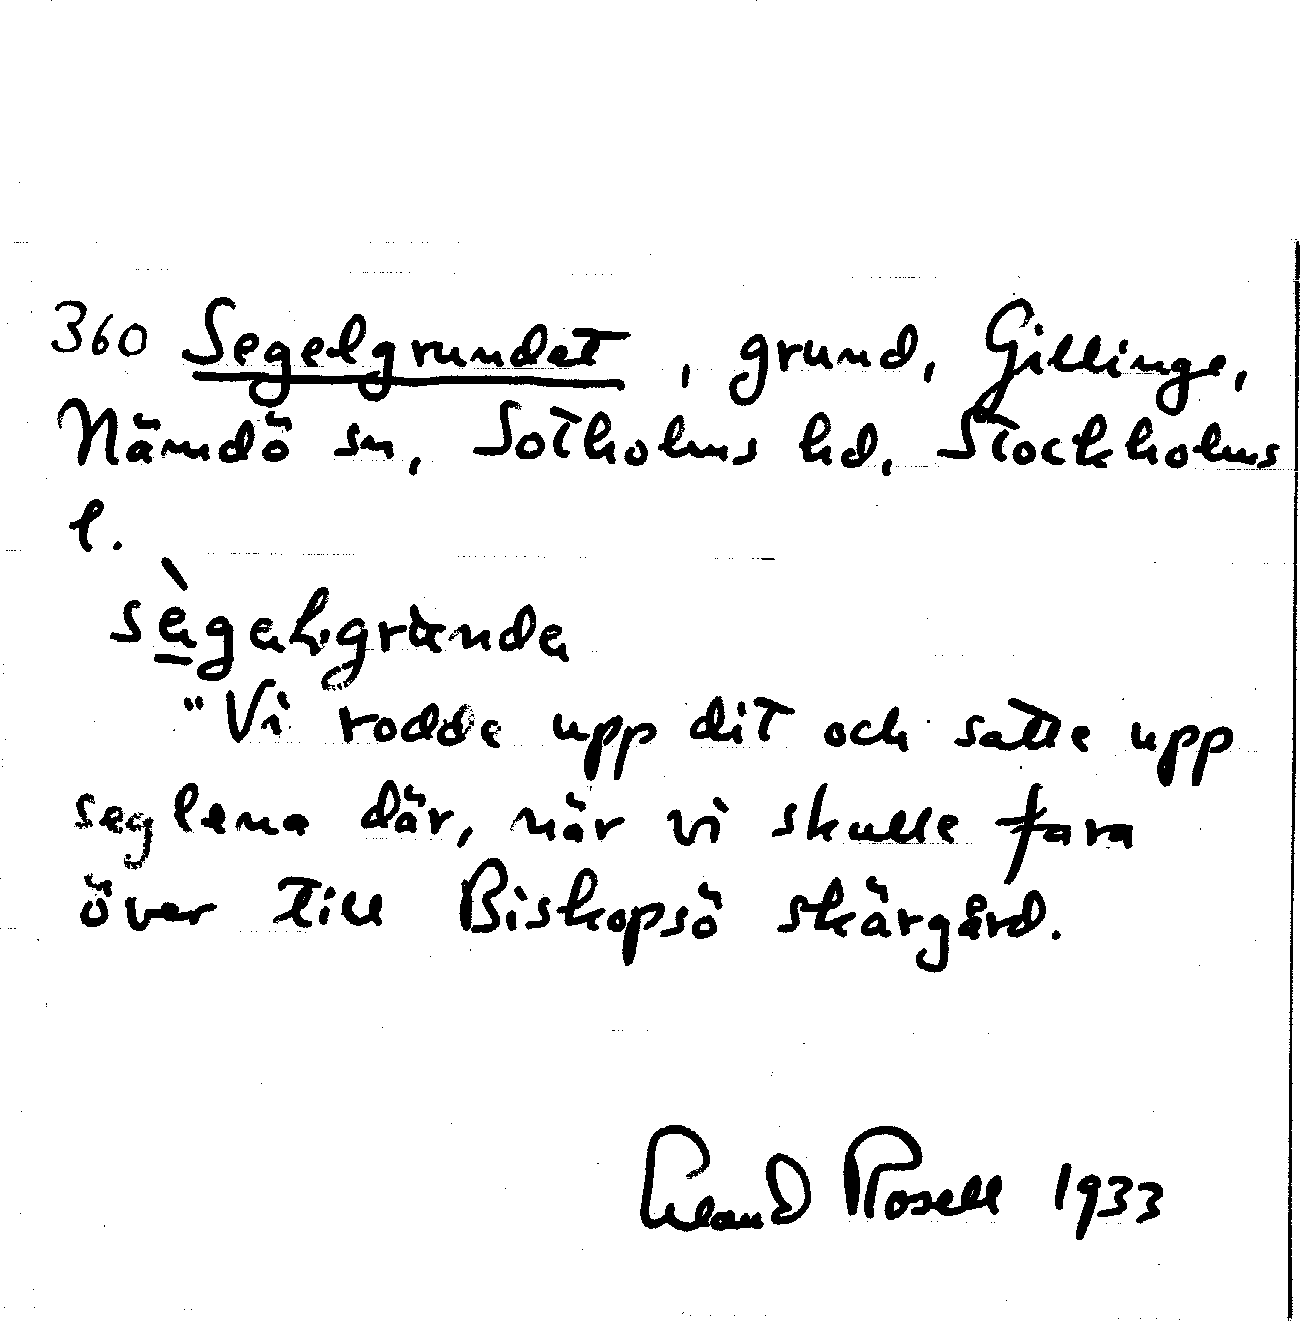 360 Segelgrundet, grund, Gillinge,
Nämdö sn, Sotholms hd, Stockholms
l.
"Vi rodde upp dit och satte upp
seglena där, när vi skulle fara
över till Biskopsö skärgård.
Erland Rosell 1933